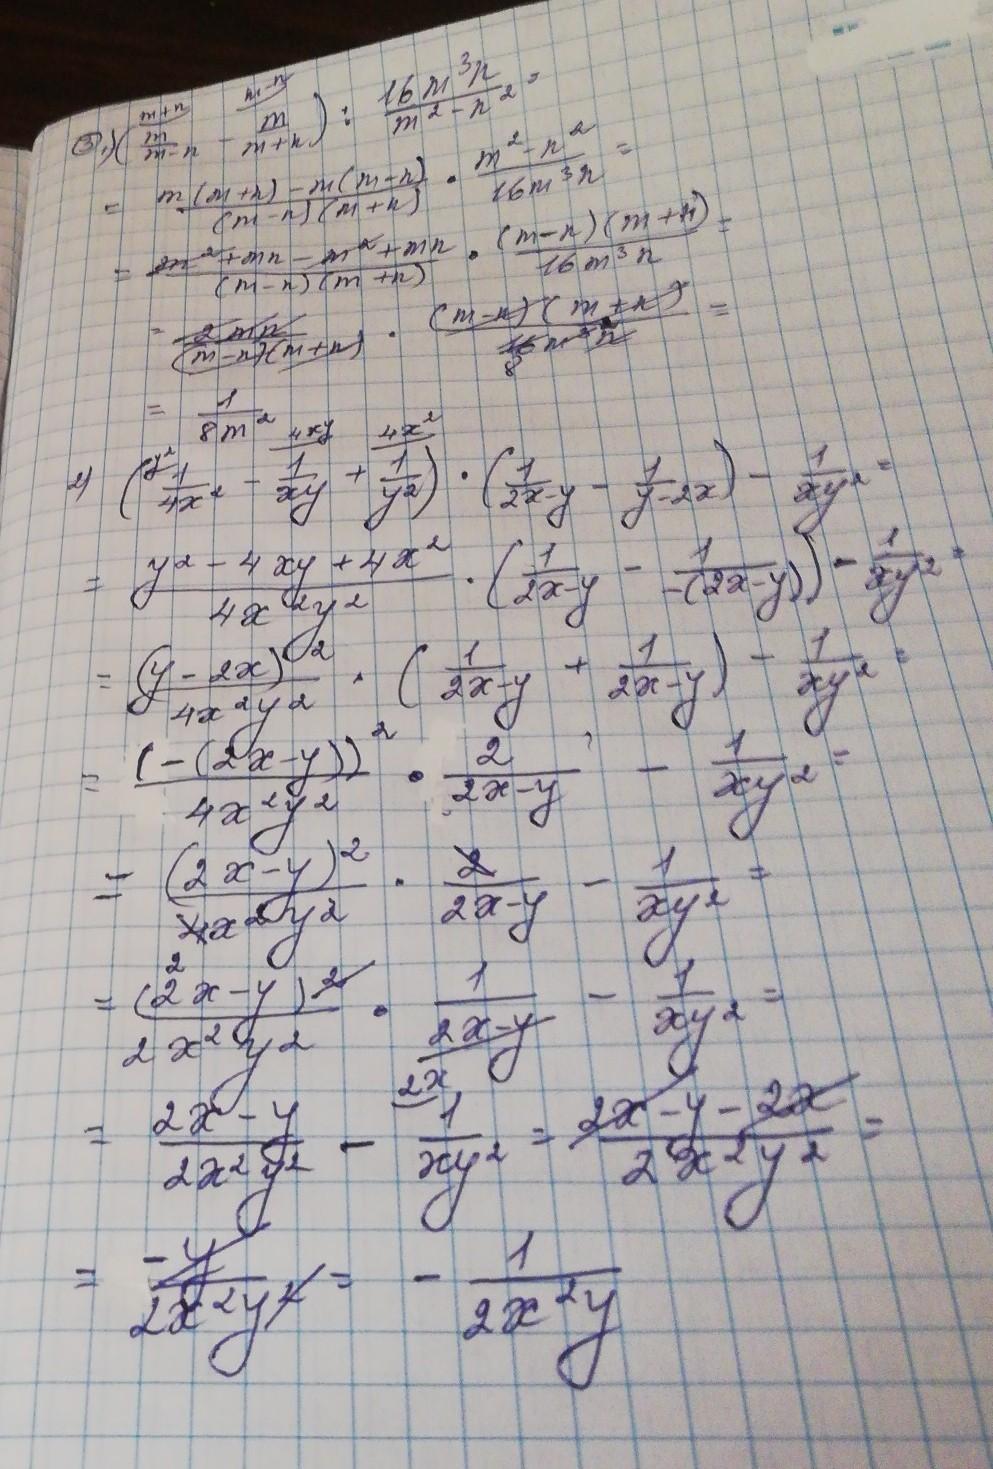 ③ 1) (m/(m-n) - m/(m+n)) : 16m³n/(m²-n²) =
= (m(m+n) - m(m-n))/((m-n)(m+n)) · (m²-n²)/(16m³n) =
= (m²+mn-m²+mn)/((m-n)(m+n)) · ((m-n)(m+n))/(16m³n) =
= 2mn/((m-n)(m+n)) · ((m-n)(m+n))/(16m³n) =
= 1/(8m²)
2) (1/(4x²) - 1/(xy) + 1/(y²)) · (1/(2x-y) - 1/(y-2x)) - 1/(xy²) =
= (y²-4xy+4x²)/(4x²y²) · (1/(2x-y) - 1/(-(2x-y))) - 1/(xy²) =
= (y-2x)²/(4x²y²) · (1/(2x-y) + 1/(2x-y)) - 1/(xy²) =
= (-(2x-y))²/(4x²y²) · 2/(2x-y) - 1/(xy²) =
= (2x-y)²/(4x²y²) · 2/(2x-y) - 1/(xy²) =
= (2x-y)²/(2x²y²) · 1/(2x-y) - 1/(xy²) =
= (2x-y)/(2x²y²) - 1/(xy²) = (2x-y-2x)/(2x²y²) =
= -y/(2x²y²) = - 1/(2x²y)